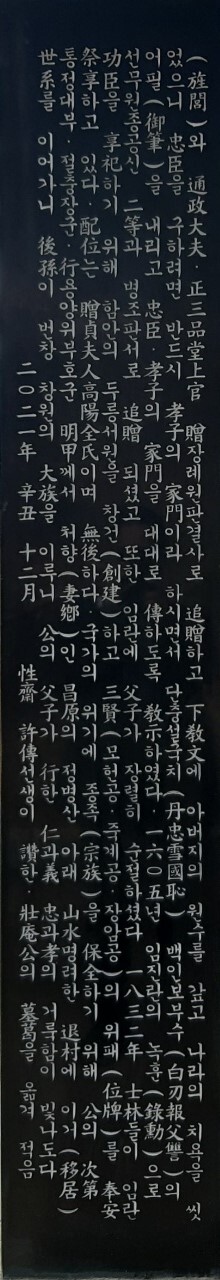 (旌閭)와 通政大夫·正三品堂上官 贈장례원판결사로 追贈하고 下敎文에 아버지의 원수를 갚고 나라의 치욕을 씻
었으니 忠臣을 구하려면 반드시 孝子의 家門이라 하시면서 단충설국치(丹忠雪國恥) 백인보부수(白刃報父讐)의
어필(御筆)을 내리고 忠臣·孝子의 家門을 대대로 傳하도록 敎示하였다 一六0五년 임진란의 녹훈(錄勳)으로
선무원종공신 二等과 병조판서로 追贈 되셨고 또한 임란에 父子가 장렬히 순절하셨다 一八三二年 士林들이 임란
功臣을 享祀하기 위해 함안의 두릉서원을 창건(創建)하고 三賢(모헌공·죽계공·장암공)의 위패(位牌)를 奉安
祭享하고 있다·配位는 贈貞夫人高陽全氏이며 無後하다·국가의 위기에 종족(宗族)을 保全하기 위해 公의 次第
통정대부·절충장군·行용양위부호군 明甲께서 처향(妻鄕)인 昌原의 정병산 아래 山水明려한 退村에 이거(移居)
世系를 이어가니 後孫이 번창 창원의 大族을 이루니 公의 父子가 行한 仁과義 忠과孝의 거룩함이 빛나도다
二0二一年 辛丑 十二月 性齋 許傳선생이 讚한·壯庵公의 墓碣을 옮겨 적음